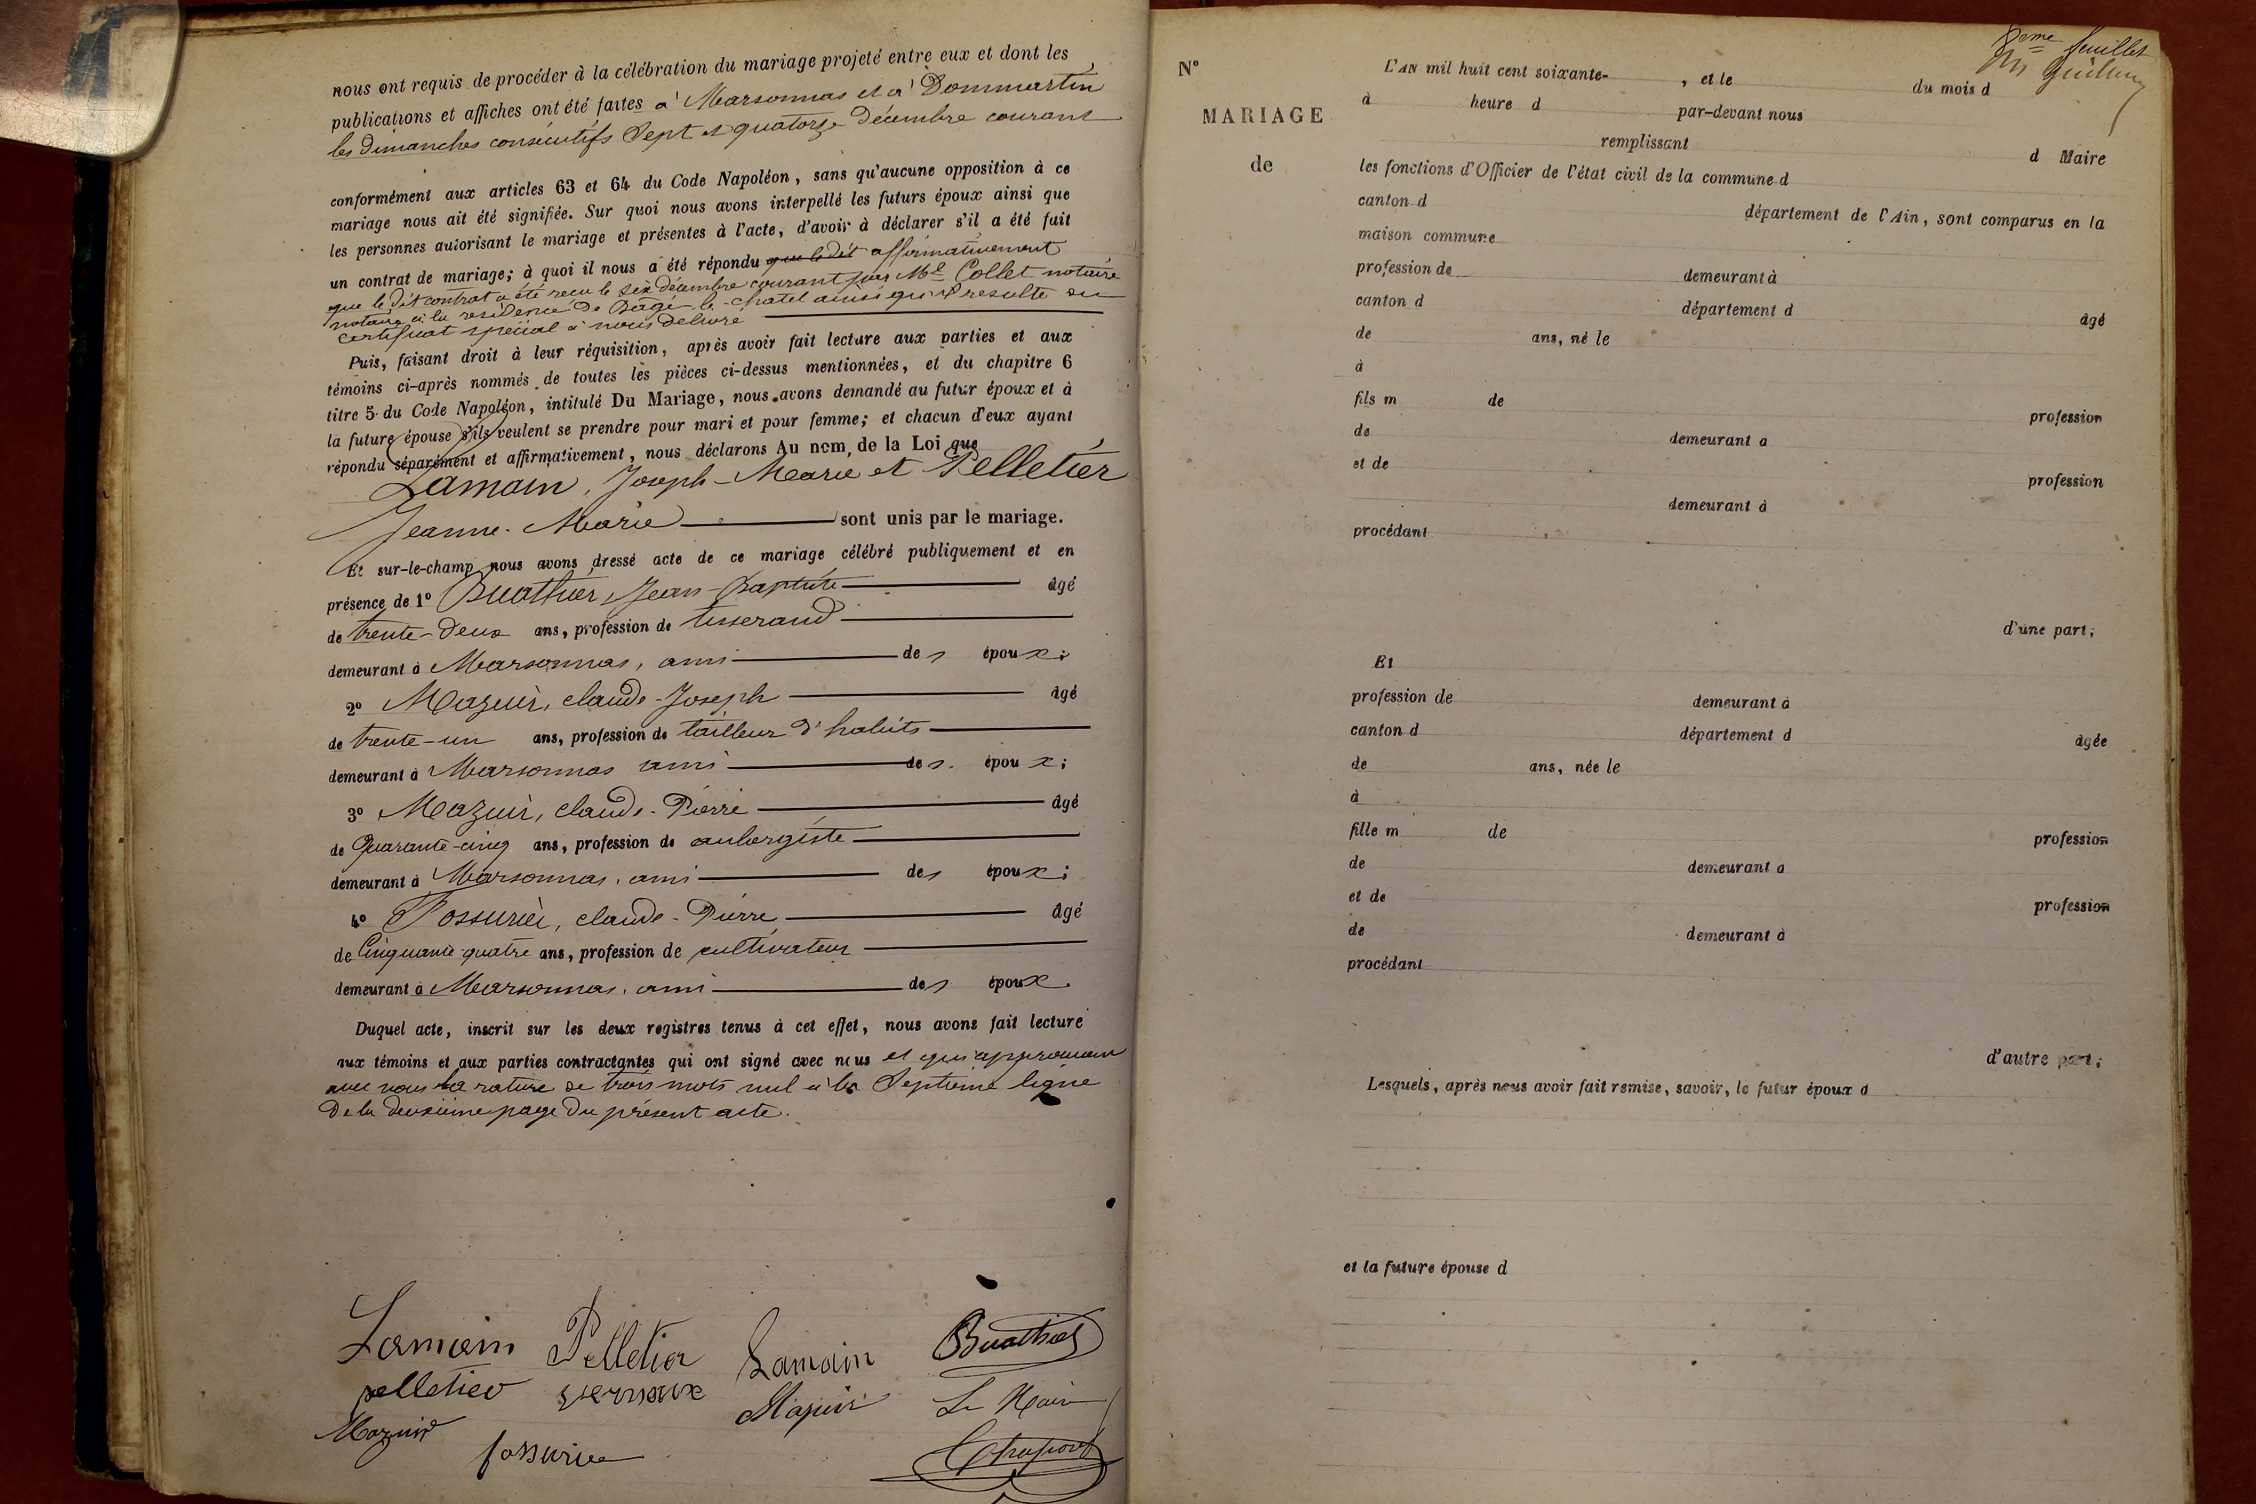 nous ont requis de procéder à la célébration du mariage projeté entre eux et dont les
publications et affiches ont été faites à Marsonnas et à Dommartin
les dimanches consécutifs Sept et quatorze décembre courant
conformément aux articles 63 et 64 du Code Napoléon, sans qu'aucune opposition à ce
mariage nous ait été signifiée. Sur quoi nous avons interpellé les futurs époux ainsi que
les personnes autorisant le mariage et présentes à l'acte, d'avoir à déclarer s'il a été fait
un contrat de mariage; à quoi il nous a été répondu que le dit affirmativement
que le dit contrat a été reçu le six décembre courant par Me Collet notaire
notaire à la résidence de Bâgé-le-chatel ainsi qu'il résulte du
certificat spécial à nous délivré
Puis, faisant droit à leur réquisition, après avoir fait lecture aux parties et aux
témoins ci-après nommés de toutes les pièces ci-dessus mentionnées, et du chapitre 6
titre 5 du Code Napoléon, intitulé Du Mariage, nous avons demandé au futur époux et à
la future épouse s'ils veulent se prendre pour mari et pour femme; et chacun d'eux ayant
répondu séparément et affirmativement, nous déclarons Au nom de la Loi que
Lamain, Joseph-Marie et Pelletier
Jeanne-Marie sont unis par le mariage.
Et sur-le-champ nous avons dressé acte de ce mariage célébré publiquement et en
présence de 1° Buathier, Jean-Baptiste âgé
de trente-deux ans, profession de tisserand
demeurant à Marsonnas, ami des époux;
2° Mazuir, claude-Joseph âgé
de trente-un ans, profession de tailleur d'habits
demeurant à Marsonnas ami des époux;
3° Mazuir, claude-Pierre âgé
de Quarante-cinq ans, profession de aubergiste
demeurant à Marsonnas, ami des époux;
4° Fossurier, claude-Pierre âgé
de Cinquante-quatre ans, profession de cultivateur
demeurant à Marsonnas, ami des époux.
Duquel acte, inscrit sur les deux registres tenus à cet effet, nous avons fait lecture
aux témoins et aux parties contractantes qui ont signé avec nous et qui approuvent
avec nous la rature de trois mots nul à la Septième ligne
De la deuxième page du présent acte.
Lamain Pelletier Lamain Buathier
pelletier Mazuir Le Maire
Mazuir
fossurier
8eme feuillet
N° L'AN mil huit cent soixante- , et le du mois d
à heure d par-devant nous
MARIAGE
remplissant d Maire
de les fonctions d'Officier de l'état civil de la commune d
canton d département de l'Ain, sont comparus en la
maison commune
profession de demeurant à
canton d département d âgé
de ans, né le
à
fils m de profession
de demeurant a
et de profession
demeurant à
procédant
d'une part;
Et
profession de demeurant à
canton d département d âgée
de ans, née le
à
fille m de profession
de demeurant a
et de profession
de demeurant à
procédant
d'autre part;
Lesquels, après nous avoir fait remise, savoir, le futur époux d
et la future épouse d